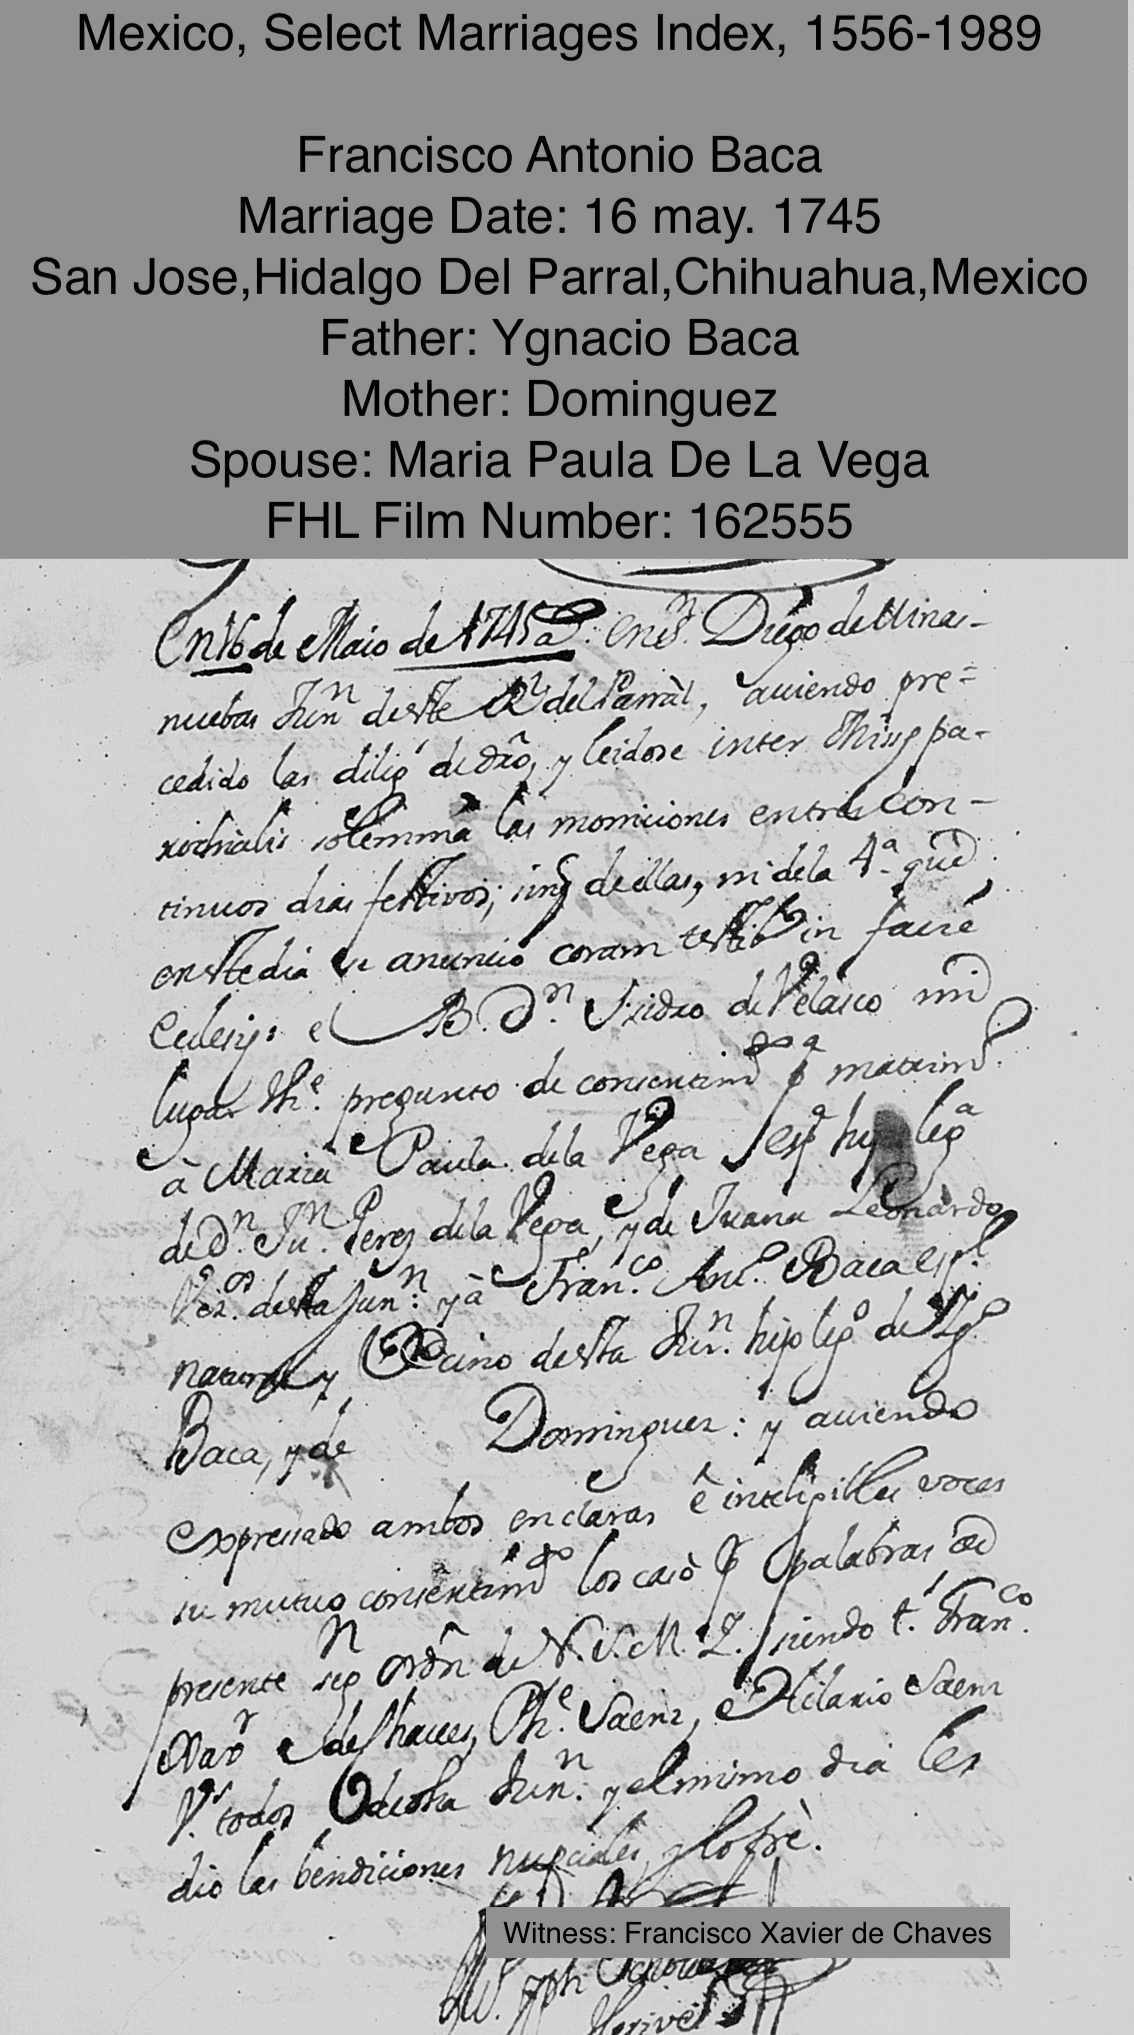 Mexico, Select Marriages Index, 1556-1989
Francisco Antonio Baca
Marriage Date: 16 may. 1745
San Jose,Hidalgo Del Parral,Chihuahua,Mexico
Father: Ygnacio Baca
Mother: Dominguez
Spouse: Maria Paula De La Vega
FHL Film Number: 162555
En 16 de Maio de 1745 a.s En Sn. Diego de Minas-
nuebas Jurn deste Rl del Parràl, aviendo pre=
cedido las dilig de dro, y leidose inter Miss pa-
rochialis solemnia las moniciones en tres con-
tinuos dias festivos; ning de ellas, ni dela 4.a que
en este dia se anuncio coram testib in facie
Eclesię: el B. Dn. Isidro de Velasco mi
lugar The. pregunto de consentimto pa matrimo.
à Maria Paula dela Vega espa hija lega
de Dn. Jun. Perez dela Vega, y de Juana Leonàrdo
Vezos. desta Jurn: y à Franco. Anto. Baca espl.
natural y Vecino desta Jurn. hijo lego de Ygo
Baca, y de Dominguez: y aviendo
expressado ambos en claras è inteligibles voces
su mutuo consentimto los casò p palabras de
presente segn ordn de N. S. M. Y. siendo t. Franco.
Xavr de Chaves, Phe. Saenz, e Hilario Saenz
Vs. todos desta Jurn: y el mismo dia les
dio las bendiciones nupciales, y lo firè.
Witness: Francisco Xavier de Chaves
Br. Jph